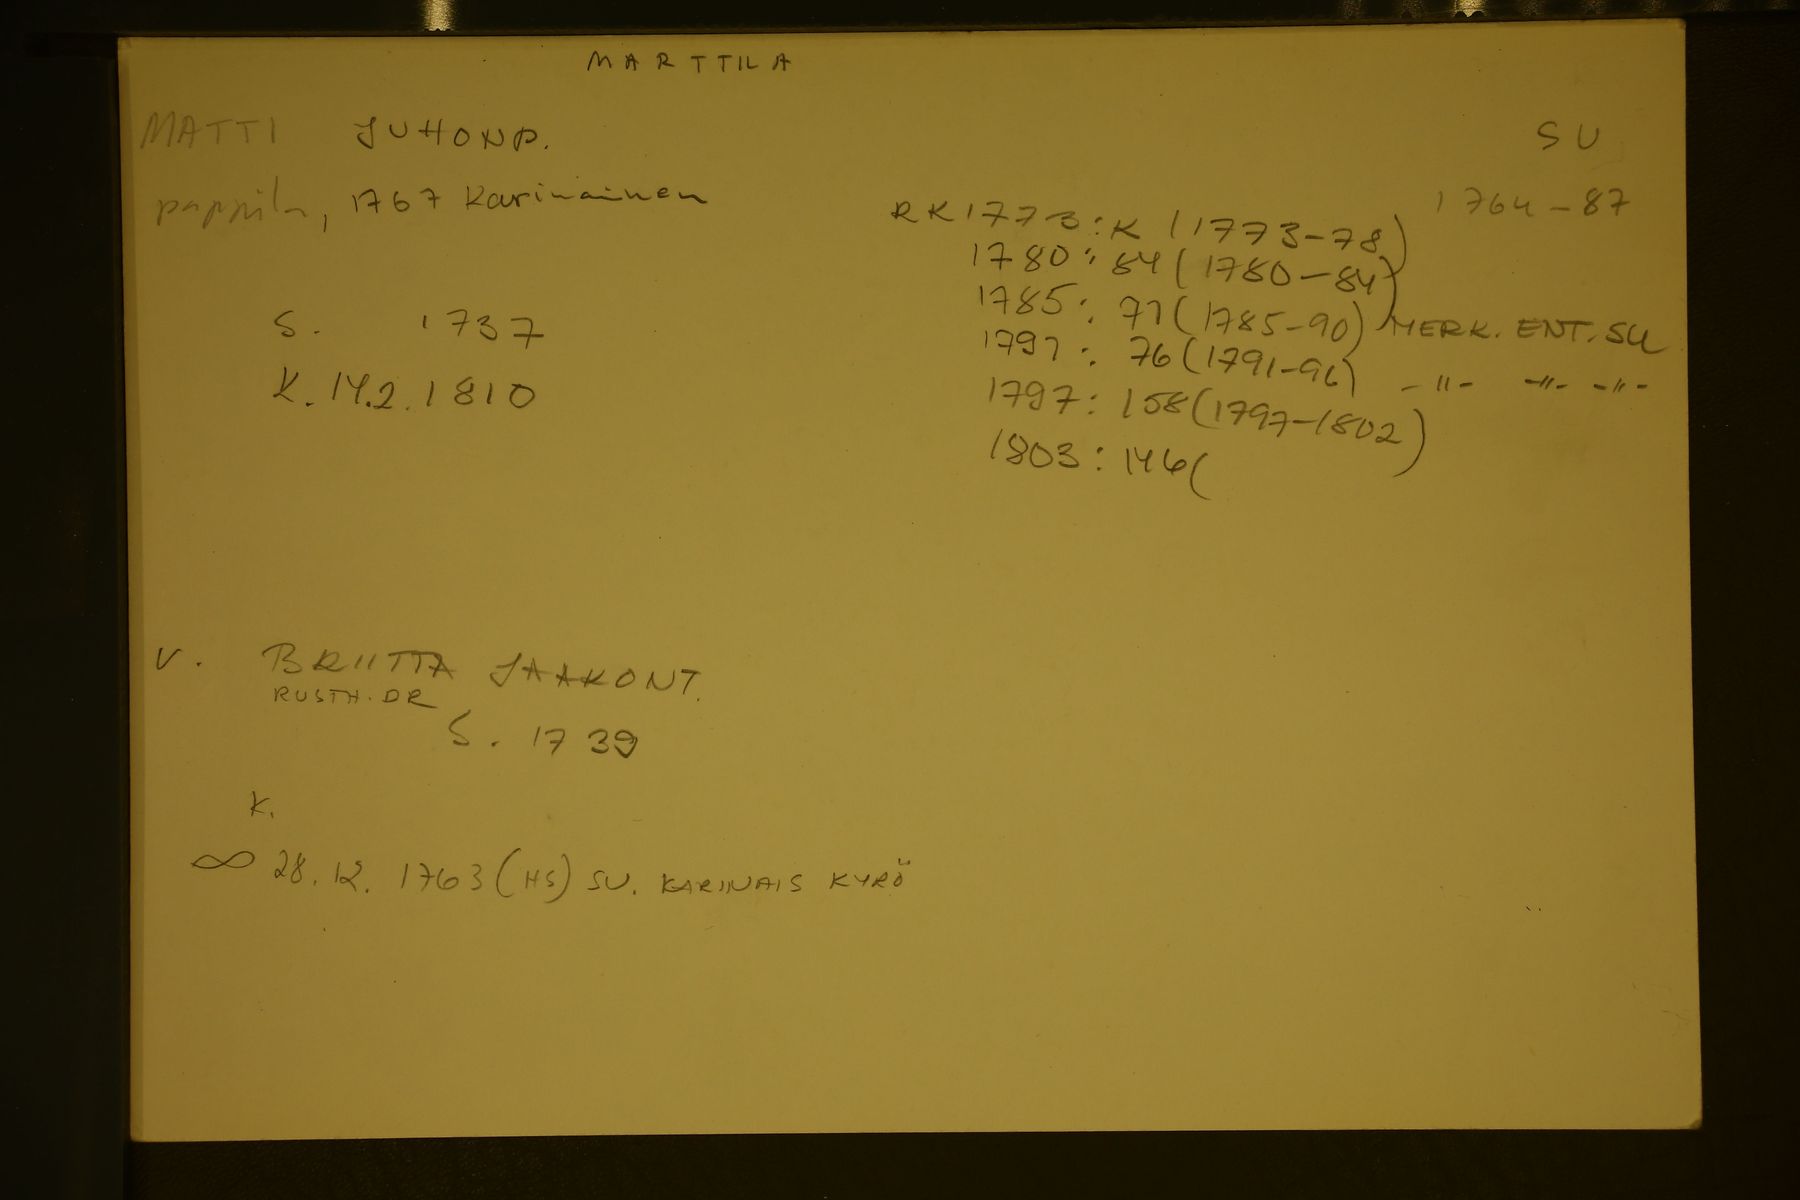 MARTTILA
MATTI JUHONP.
SU
pappila, 1767 Karinainen
1764-87
RK 1773: K (1773-78)
1780: 84 (1780-84)
1785: 71 (1785-90) MERK. ENT. SU
1791: 76 (1791-96) -"- -"- -"-
1797: 158 (1797-1802)
1803: 146 (
S. 1737
K. 14.2.1810
V. BRIITTA JAAKONT.
RUSTH. DR
S. 1739
K.
∞ 28.12.1763 (HS) SU. KARINAIS KYRÖ